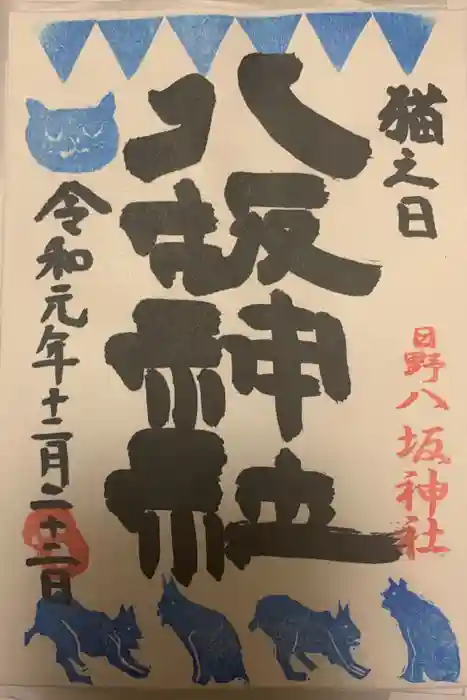 猫之日
日野八坂神社
八坂神社
令和元年十二月二十二日